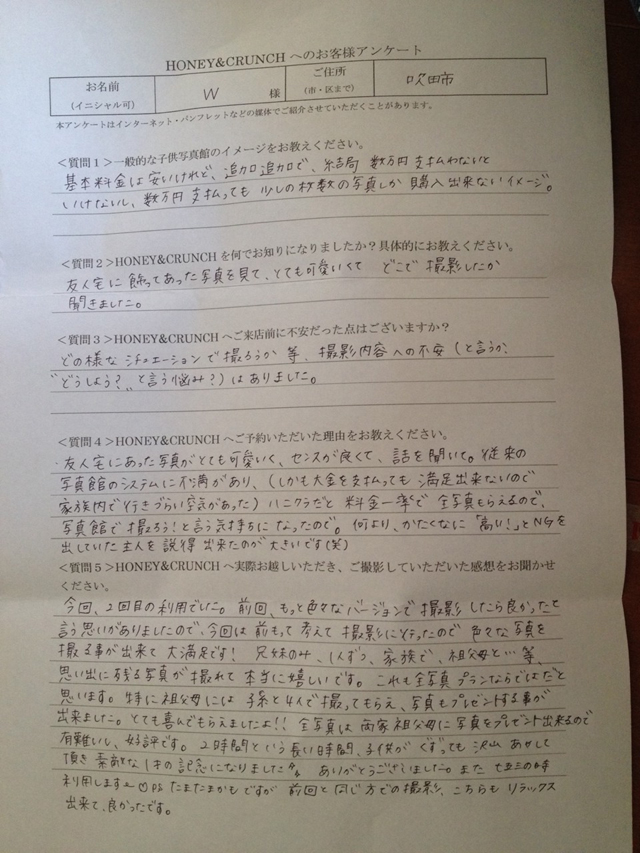 HONEY&CRUNCH へのお客様アンケート
お名前
(イニシャル可)
W 様
ご住所
(市・区まで)
吹田市
本アンケートはインターネット・パンフレットなどの媒体でご紹介させていただくことがあります。
<質問1>一般的な子供写真館のイメージをお教えください。
基本料金は安いけれど、追加追加で、結局 数万円支払わないと
いけないし、数万円支払っても 少しの枚数の写真しか 購入出来ないイメージ。
<質問2>HONEY&CRUNCHを何でお知りになりましたか?具体的にお教えください。
友人宅に飾ってあった写真を見て、とても可愛いくて どこで撮影したか
聞きました。
<質問3>HONEY&CRUNCHへご来店前に不安だった点はございますか?
どの様なシチュエーションで撮ろうか 等、撮影内容への不安(と言うか、
"どうしよう?"と言う悩み?)はありました。
<質問4>HONEY&CRUNCHへご予約いただいた理由をお教えください。
・友人宅にあった写真がとても可愛いく、センスが良くて、話を聞いて。従来の
写真館のシステムに不満があり、(しかも大金を支払っても 満足出来ないので
家族内で行きづらい空気があった)ハニクラだと 料金一率で 全写真もらえるので、
写真館で撮ろう!と言う気持ちになったので。何より、かたくなに「高い!」とNGを
出していた主人を説得出来たのが大きいです(笑)
<質問5>HONEY&CRUNCHへ実際お越しいただき、ご撮影していただいた感想をお聞かせ
ください。
今回、2回目の利用でした。前回、もっと色々なバージョンで撮影したら良かったと
言う思いがありましたので、今回は前もって考えて撮影に行ったので 色々な写真を
撮る事が出来て 大満足です! 兄妹のみ、1人ずつ、家族で、祖父母と…等、
思い出に残る写真が撮れて本当に嬉しいです。これも全写真プランならではだと
思います。特に祖父母には 子・孫と4人で撮ってもらえ、写真もプレゼントする事が
出来ました。とても喜んでもらえましたよ!! 全写真は両家祖父母に写真をプレゼント出来るので
有難いし、好評です。2時間という長い時間、子供が ぐずっても 沢山 あやして
頂き 素敵な1才の記念になりました。ありがとうございました。また 七五三の時
利用します~♡ PS たまたまかもですが 前回と同じ方での撮影、こちらも リラックス
出来て、良かったです。